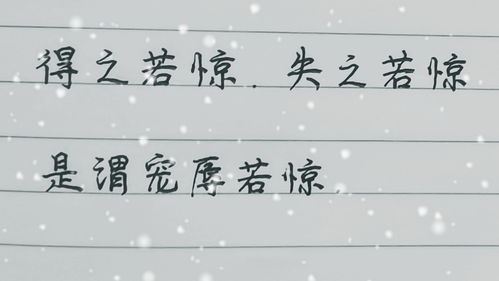 得之若惊.失之若惊
是谓宠辱若惊.